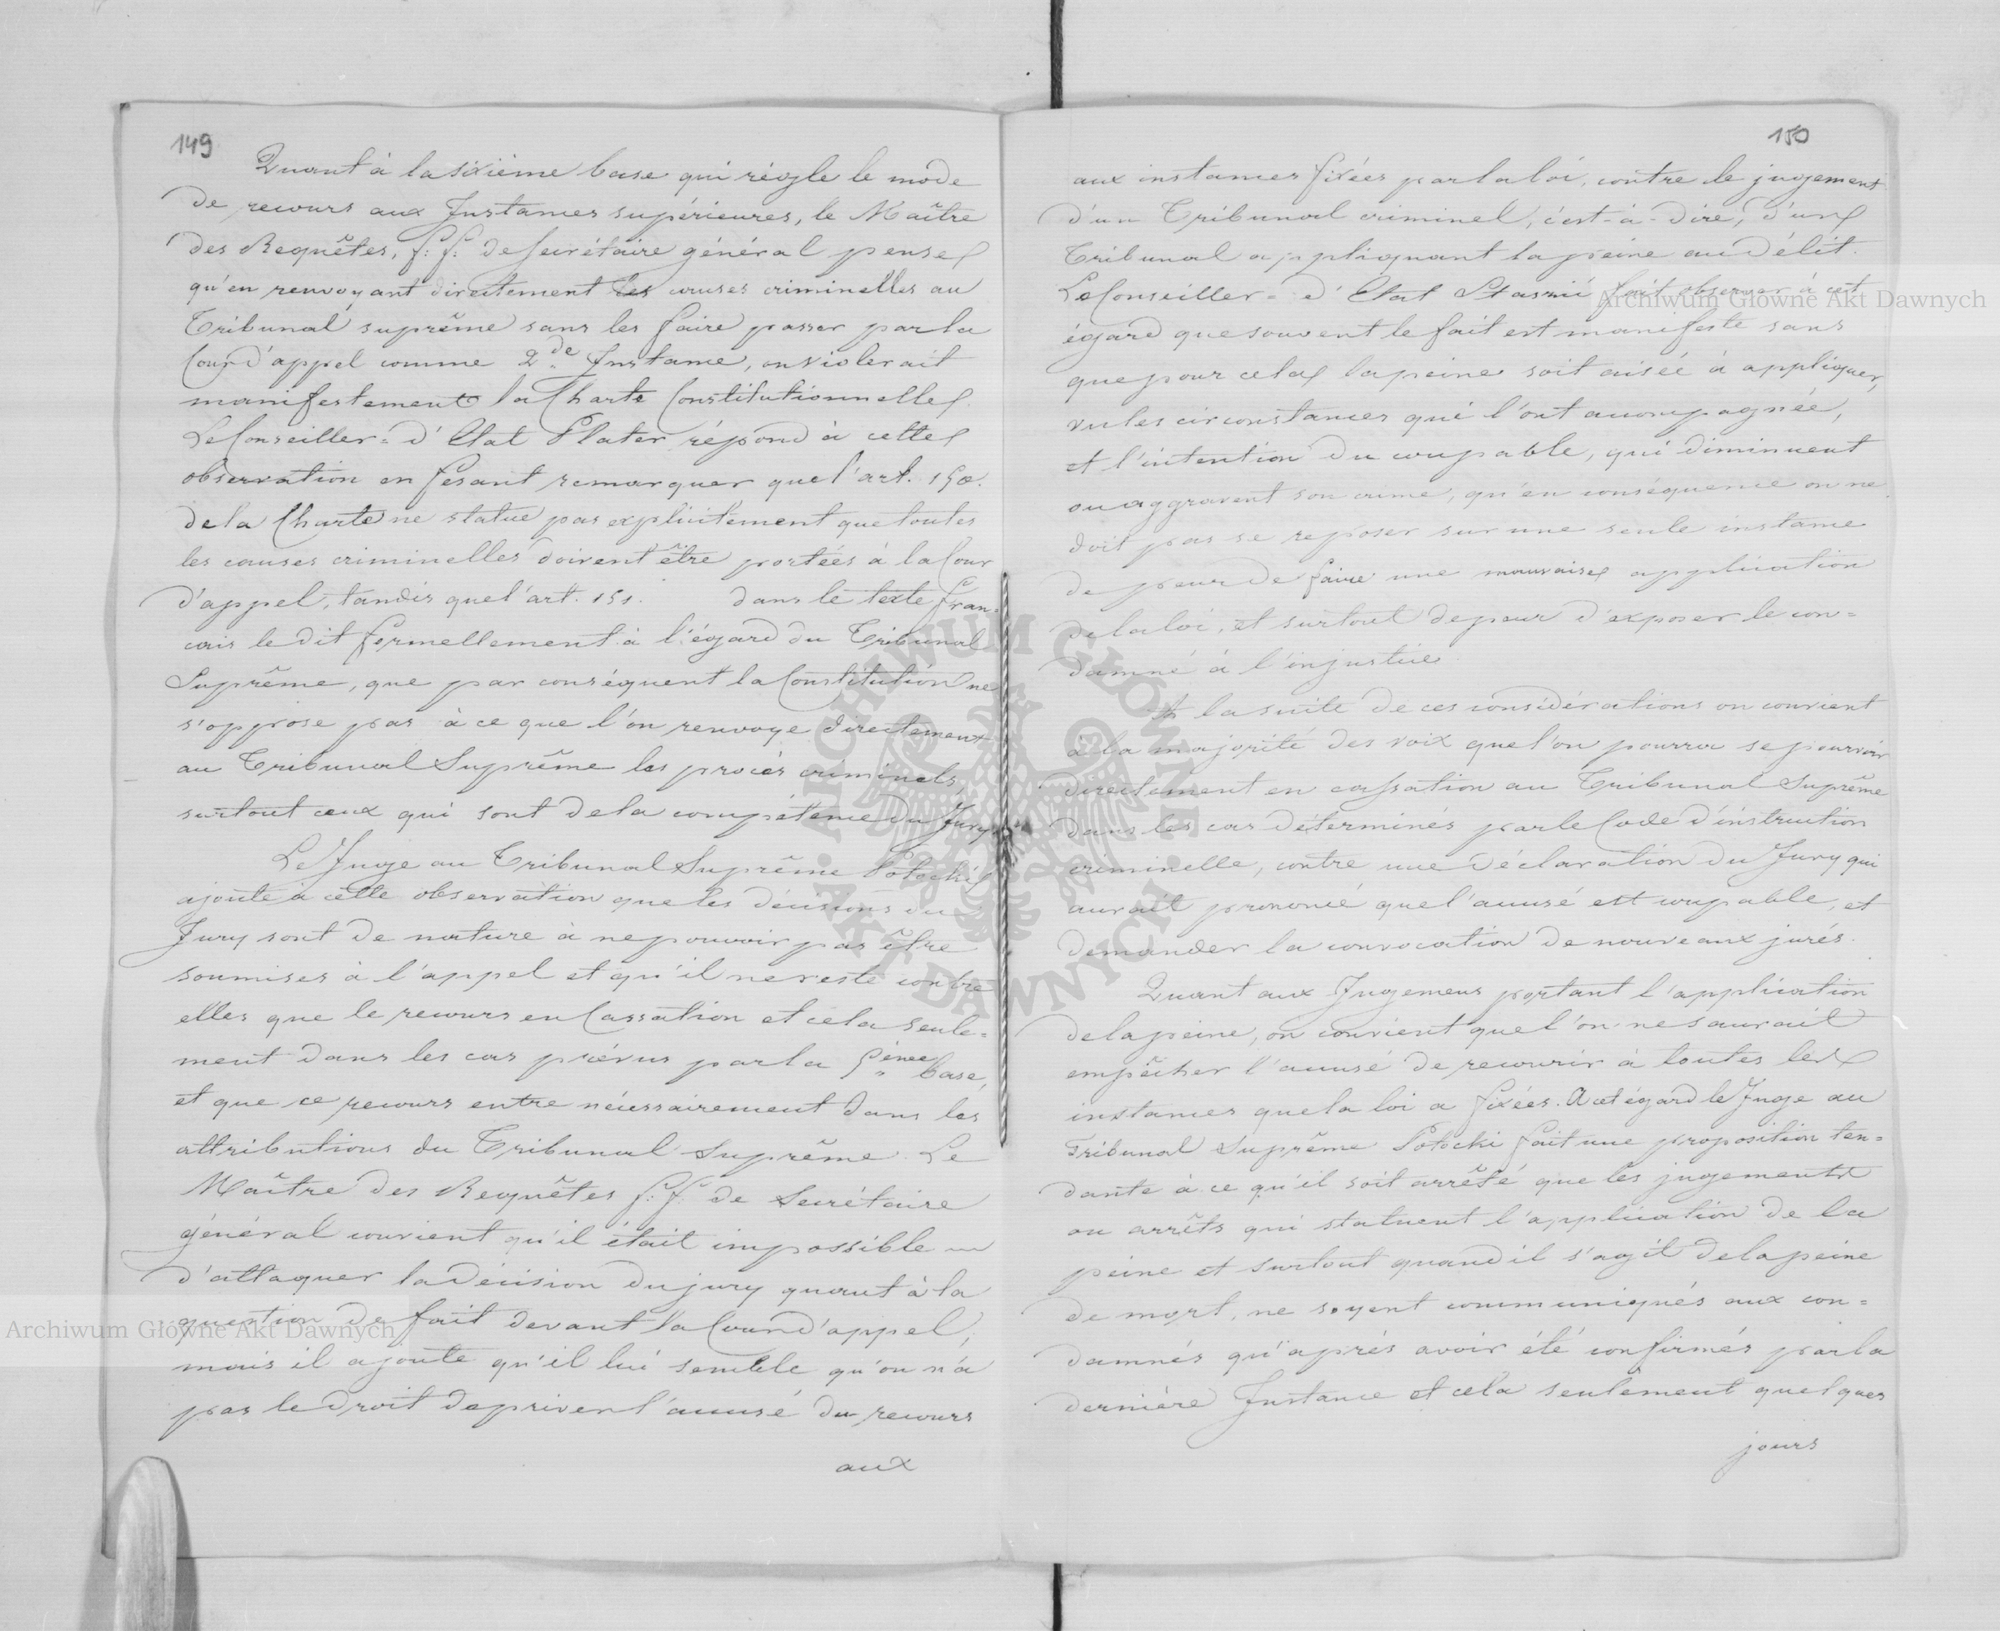 149
Quant à la sixième base qui règle le mode
de recours aux Instances supérieures, le Maître
des Requêtes, f: f: de Secrétaire général pense
qu'en renvoyant directement les causes criminelles au
Tribunal suprême sans les faire passer par la
Cour d'appel comme 2de Instance, on violerait
manifestement la Charte Constitutionnelle.
Le Conseiller = d'Etat Plater répond à cette
observation en fesant remarquer que l'art. 150.
de la Charte ne statue pas explicitement que toutes
les causes criminelles doivent être portées à la Cour
d'appel, tandis que l'art. 151. dans le texte fran-
cais le dit formellement à l'égard du Tribunal
Suprême, que par conséquent la Constitution ne
s'oppose pas à ce que l'on renvoye directement
au Tribunal Suprême les procès criminels,
surtout ceux qui sont de la compétence du Jury
Le Juge au Tribunal Suprême Potocki
ajoute à cette observation que les décisions du
Jury sont de nature à ne pouvoir pas être
soumises à l'appel et qu'il ne reste contre
elles que le recours en Cassation et cela seule=
ment dans les cas prévus par la 5ème base,
et que ce recours entre nécessairement dans les
attributions du Tribunal Suprême. Le
Maître des Requêtes f: f: de Secrétaire
général convient qu'il était impossible
d'attaquer la décision du jury quant à la
question de fait devant la Cour d'appel,
mais il ajoute qu'il lui semble qu'on n'a
pas le droit de priver l'accusé du recours
aux
150
aux instances fixées par la loi, contre le jugement
d'un Tribunal criminel, c'est-à-dire, d'un
Tribunal appliquant la peine au délit.
Le Conseiller = d'Etat fait observer à cet
égard que souvent le fait est manifeste sans
que pour cela la peine soit aisée à appliquer,
vu les circonstances qui l'ont accompagnée,
et l'intention du coupable, qui diminuent
ou aggravent son crime, qu'en conséquence on ne
doit pas se reposer sur une seule instance
de peur de faire une mauvaise application
de la loi, et surtout de peur d'exposer le con=
damné à l'injustice.
A la suite de ces considérations on convient
à la majorité des voix que l'on pourra se pourvoir
directement en cassation au Tribunal Suprême
dans les cas déterminés par le Code d'instruction
criminelle, contre une déclaration du Jury qui
aurait prononcé que l'accusé est coupable, et
demander la convocation de nouveaux jurés.
Quant aux Jugemens portant l'application
de la peine, on convient que l'on ne saurait
empêcher l'accusé de recourir à toutes les
instances que la loi a fixées. A cet égard le Juge au
Tribunal Suprême Potocki fait une proposition ten=
dante à ce qu'il soit arrêté que les jugements
ou arrêts qui statuent l'application de la
peine et surtout quand il s'agit de la peine
de mort, ne soyent communiqués aux con=
damnés qu'après avoir été confirmés par la
dernière Instance et cela seulement quelques
jours
Archiwum Główne Akt Dawnych
Archiwum Główne Akt Dawnych
ARCHIWUM GŁÓWNE
AKT DAWNYCH